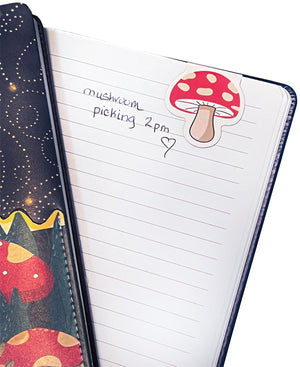 mushroom
picking 2pm